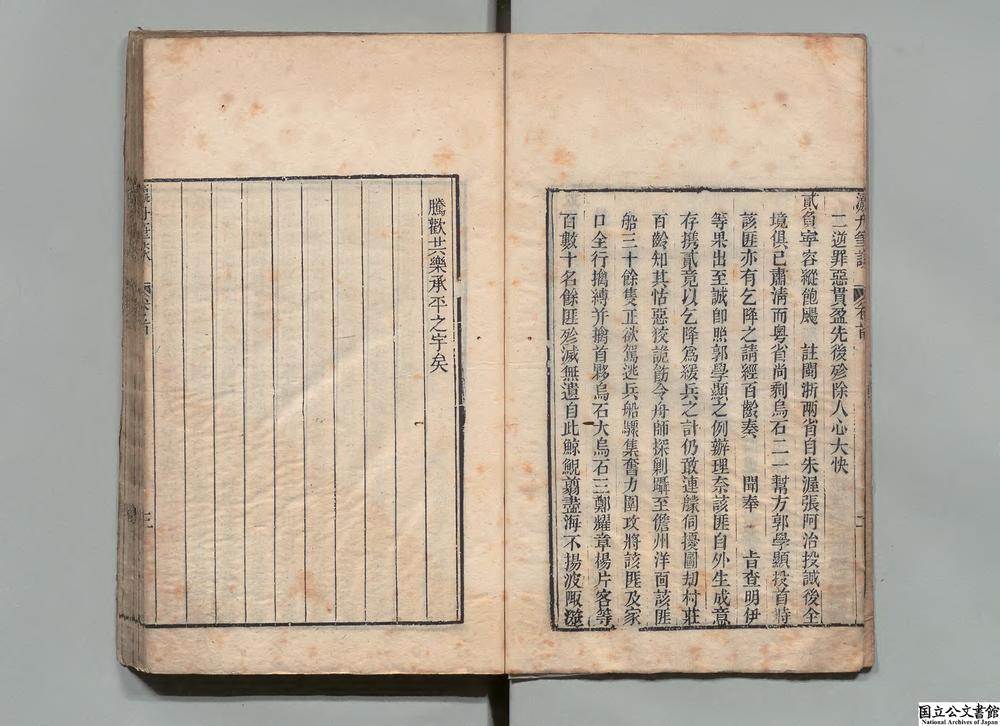 瀛舟筆談 卷首 二
二逆罪惡貫盈先後殄除人心大快
貳負寧容縱飽颺 註閩浙兩省自朱渥張阿治投誠後全
境俱已肅清而粤省尚剩烏石二一幫方郭學顯投首時
該匪亦有乞降之請經百齡奏 聞奉 旨查明伊
等果出至誠卽照郭學顯之例辦理奈該匪自外生成意
存攜貳竟以乞降爲緩兵之計仍敢連䑸伺擾圖刧村莊
百齡知其怙惡狡詭飭令舟師探剿躡至儋州洋面該匪
船三十餘隻正欲駕逃兵船驟集奮力圍攻將該匪及家
口全行擒縛并擒首夥烏石大烏石三鄭耀章楊片客等
百數十名餘匪殄滅無遺自此鯨鯢翦盡海不揚波陬澨
騰歡共樂承平之宇矣
瀛舟筆談 卷首 三
国立公文書館
National Archives of Japan